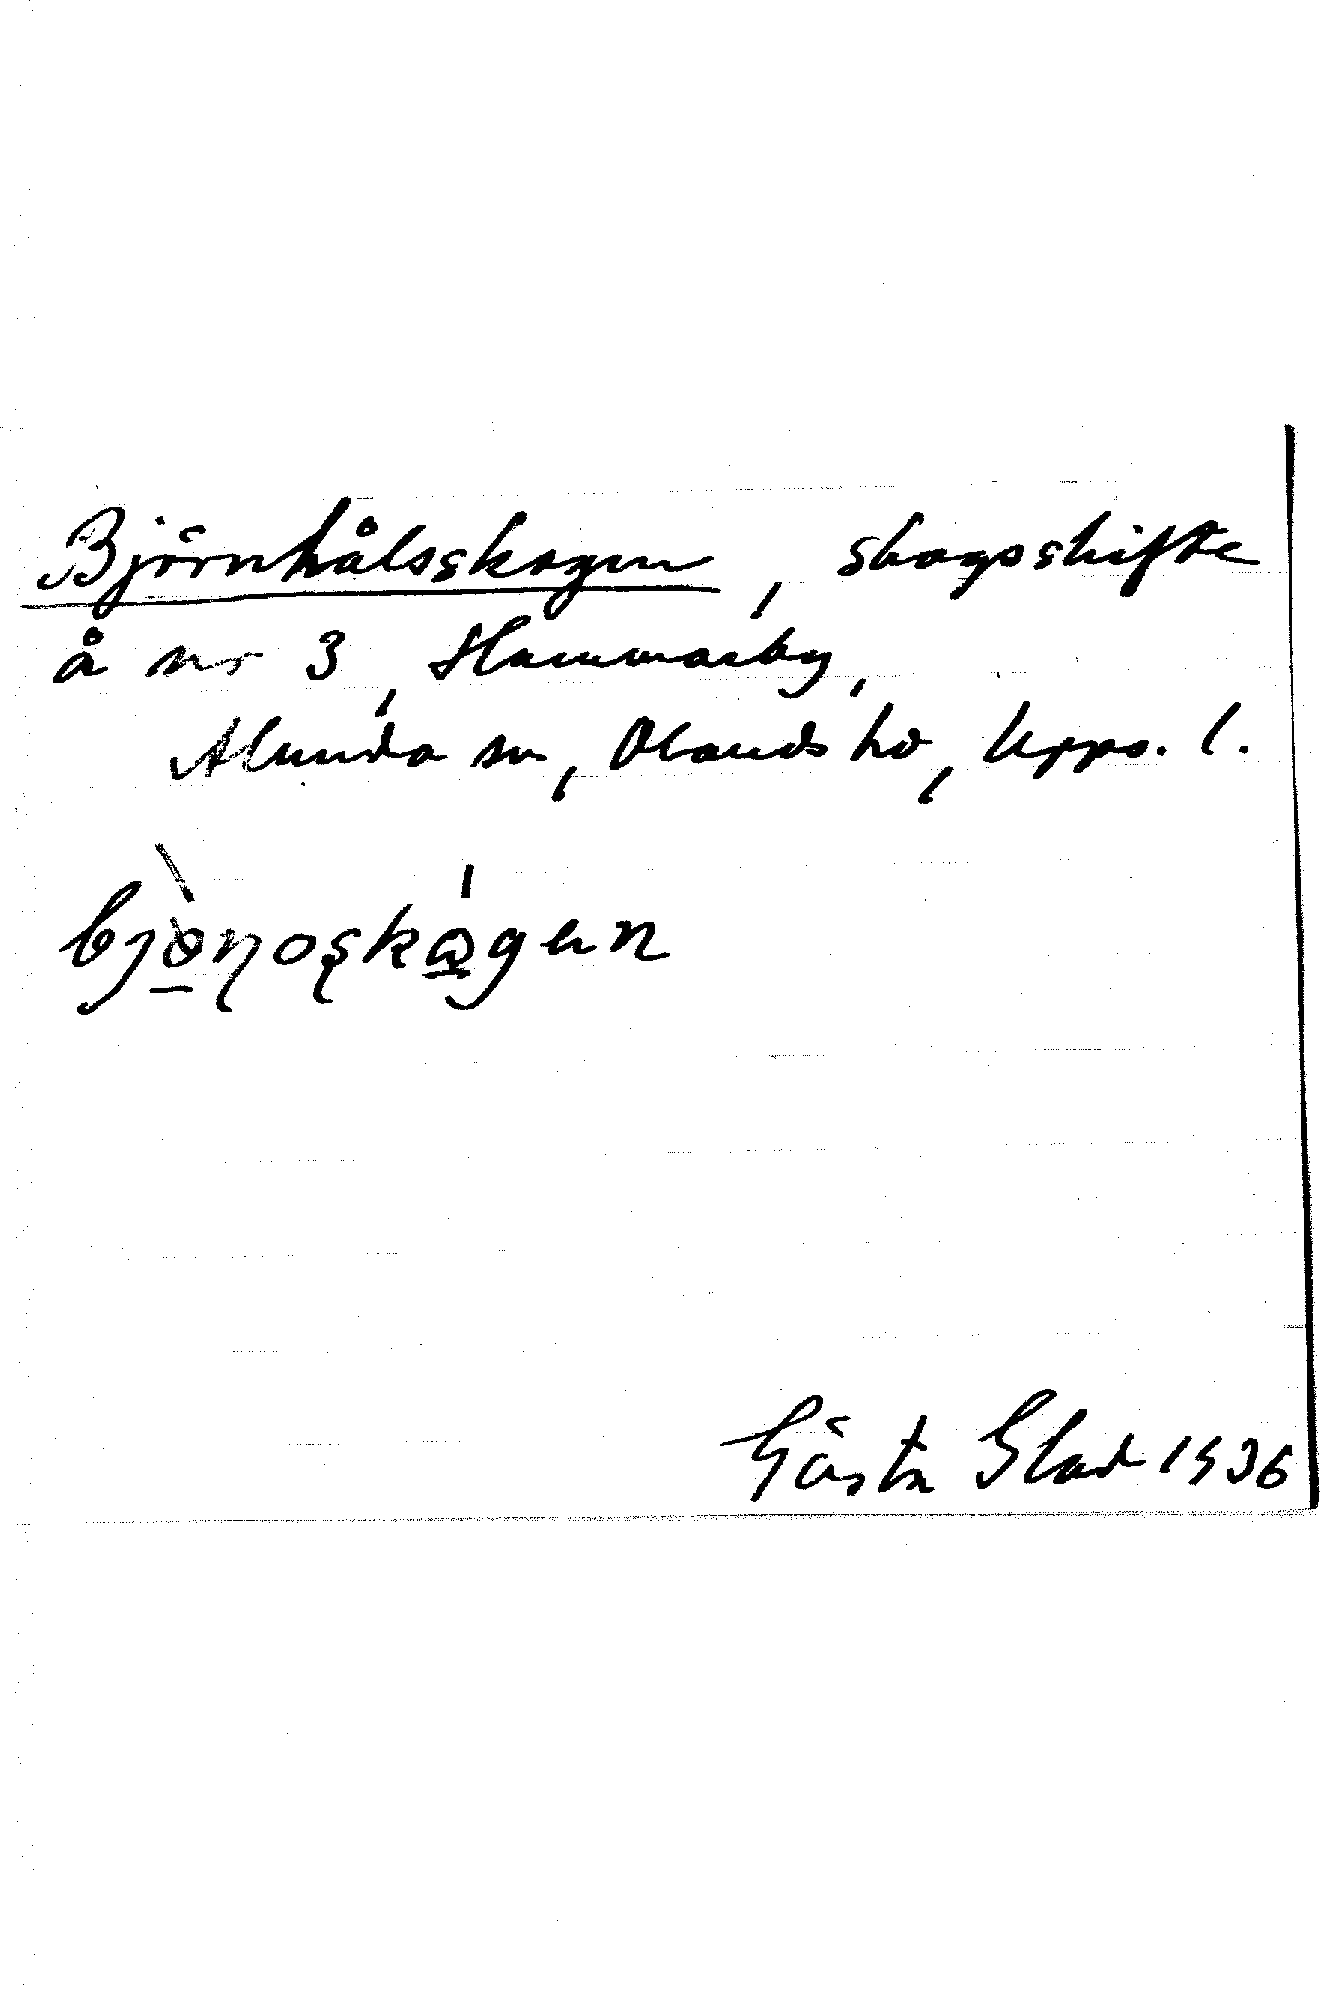 Björnhålsskogen, skogsskifte
å nr 3, Hammarby,
Alunda sn, Olands hd, Upps. l.
bjö̀ṇoşkǻgen
Gösta Glad 1936